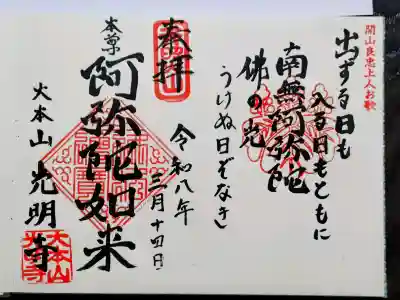 開山良忠上人お歌
出ずる日も
入る日もともに
南無阿弥陀
佛の光
うけぬ日ぞなき
奉拝
令和八年
三月十四日
本尊
阿弥陀如来
大本山 光明寺
大本山
光明寺